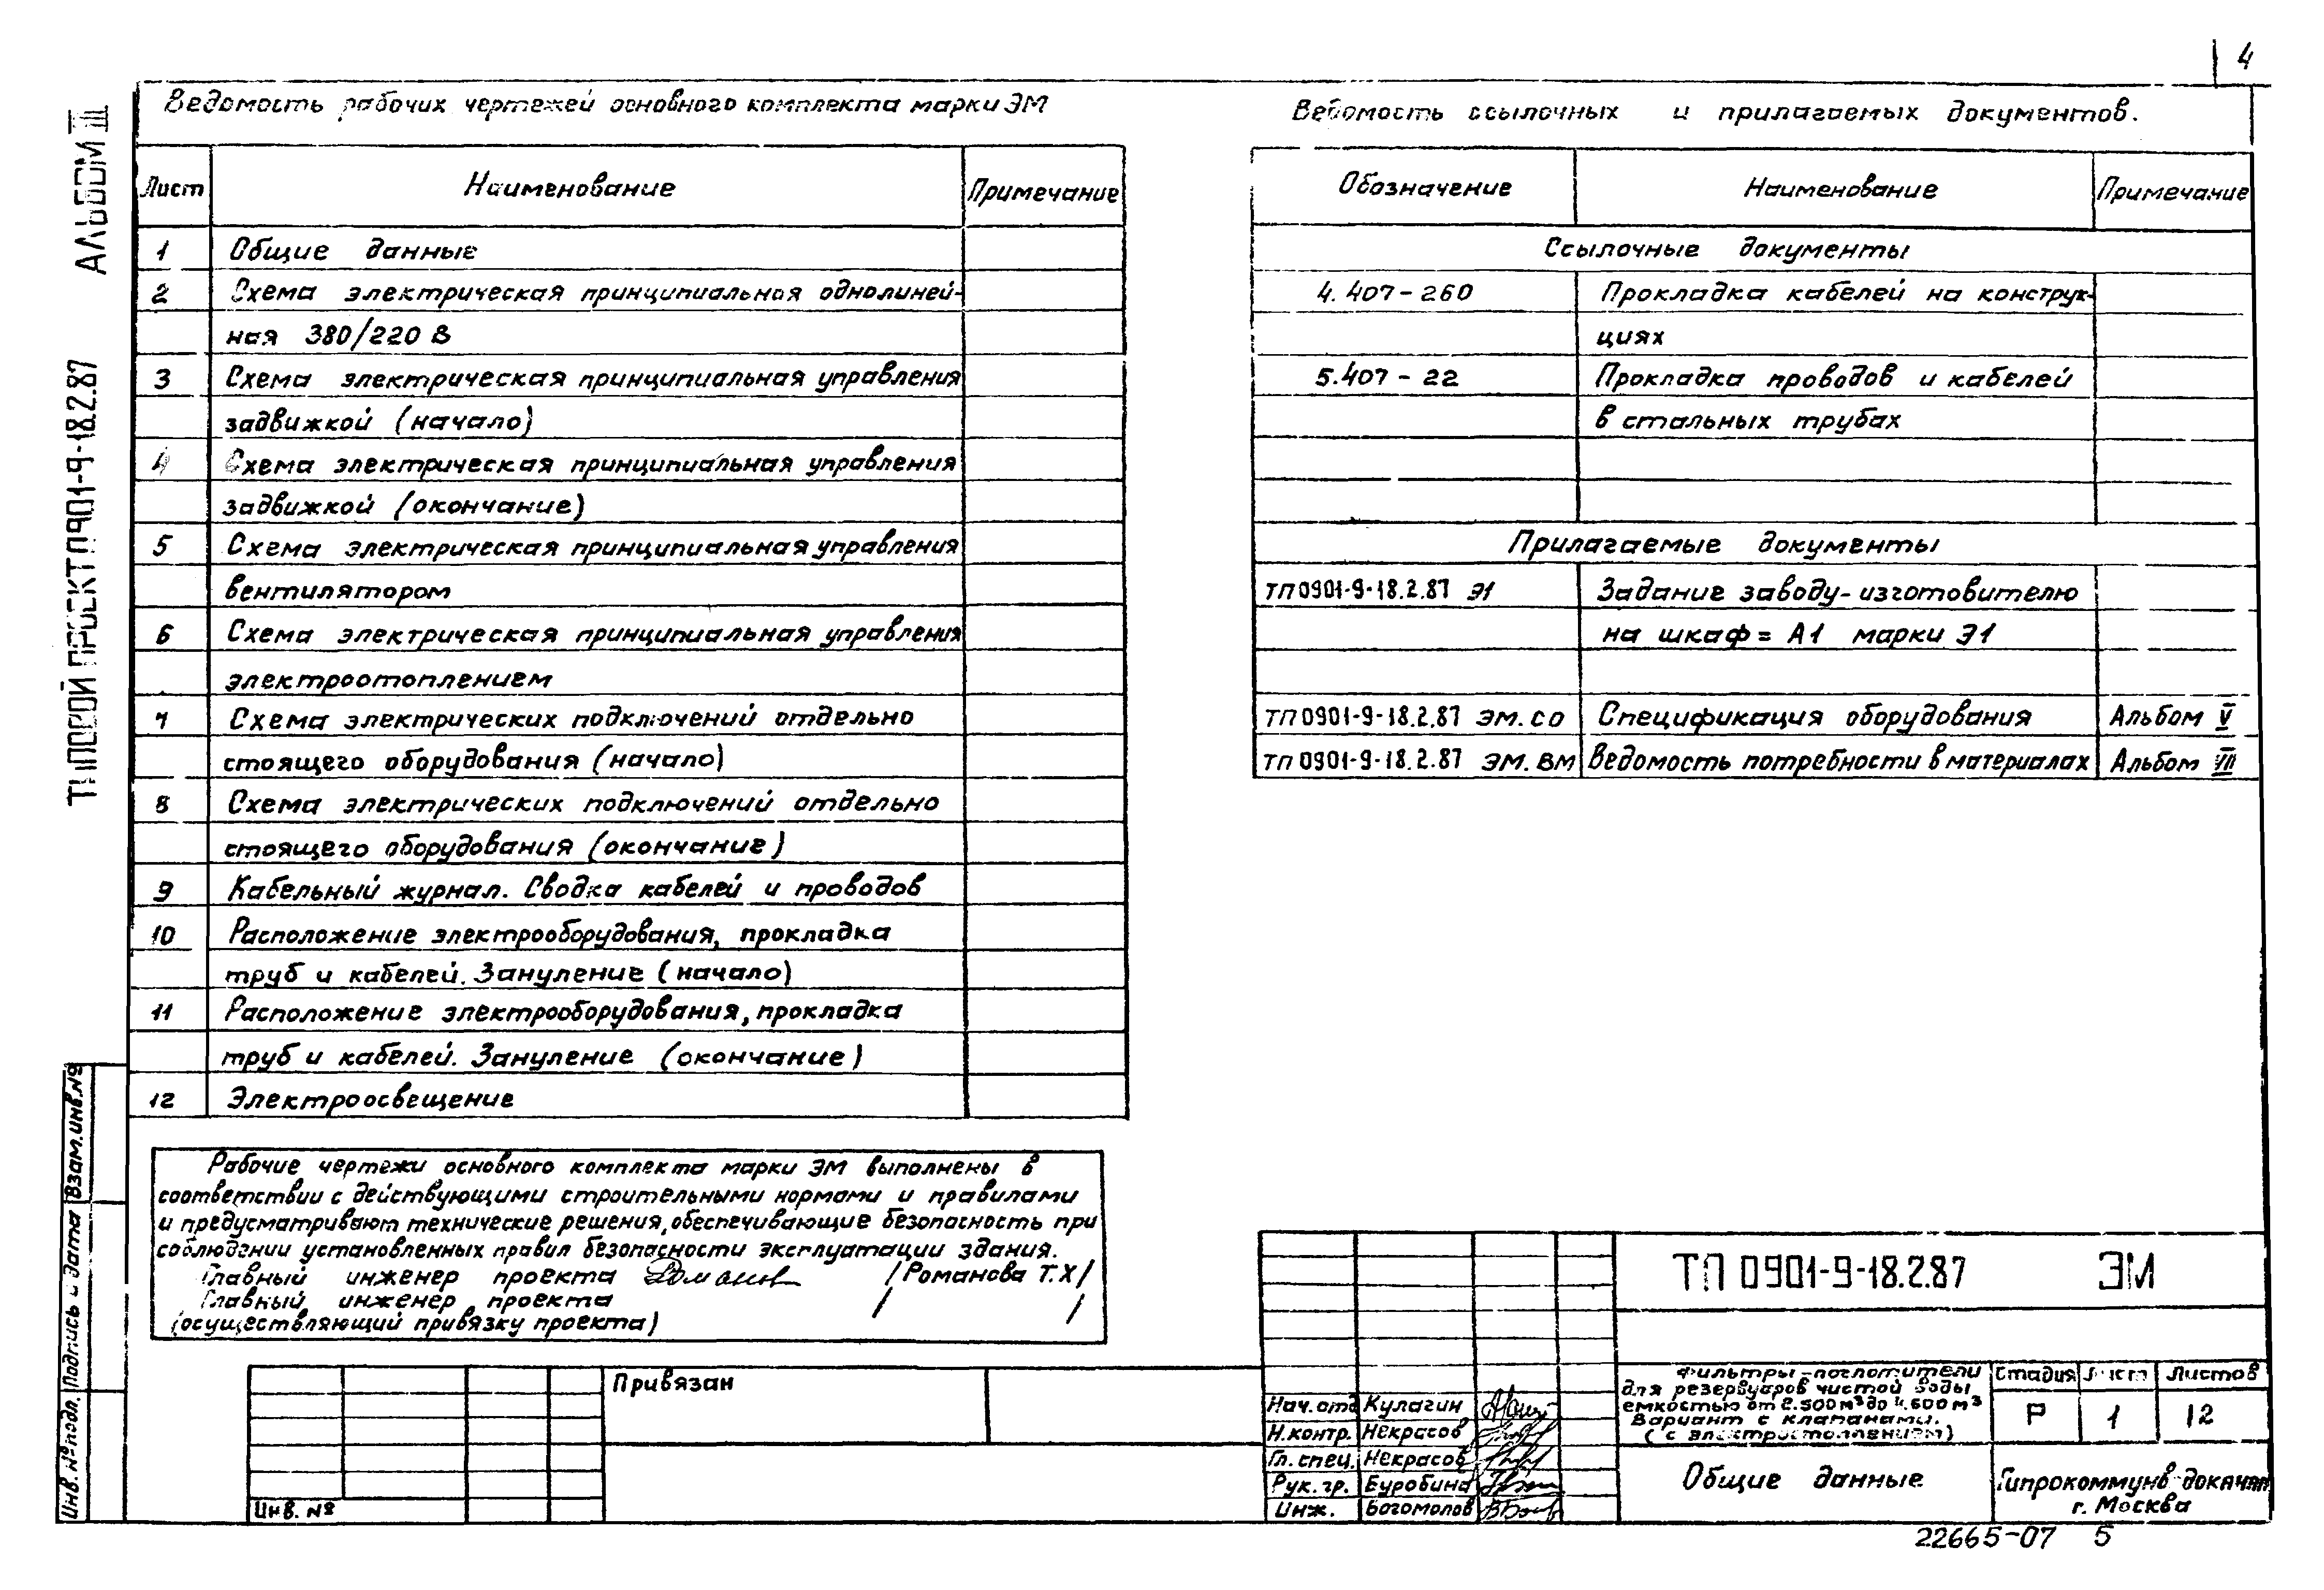 4
АЛЬБОМ III
ТИПОВОЙ ПРОЕКТ П0901-9-18.2.87
Ведомость рабочих чертежей основного комплекта марки ЭМ
Лист Наименование Примечание
1 Общие данные
2 Схема электрическая принципиальная однолиней-
ная 380/220 В
3 Схема электрическая принципиальная управления
задвижкой (начало)
4 Схема электрическая принципиальная управления
задвижкой (окончание)
5 Схема электрическая принципиальная управления
вентилятором
6 Схема электрическая принципиальная управления
электроотоплением
7 Схема электрических подключений отдельно
стоящего оборудования (начало)
8 Схема электрических подключений отдельно
стоящего оборудования (окончание)
9 Кабельный журнал. Сводка кабелей и проводов
10 Расположение электрооборудования, прокладка
труб и кабелей. Зануление (начало)
11 Расположение электрооборудования, прокладка
труб и кабелей. Зануление (окончание)
12 Электроосвещение
Ведомость ссылочных и прилагаемых документов.
Обозначение Наименование Примечание
Ссылочные документы
4.407-260 Прокладка кабелей на конструк-
циях
5.407-22 Прокладка проводов и кабелей
в стальных трубах
Прилагаемые документы
ТП0901-9-18.2.87 Э1 Задание заводу-изготовителю
на шкаф = А1 марки Э1
ТП0901-9-18.2.87 ЭМ.СО Спецификация оборудования Альбом V
ТП0901-9-18.2.87 ЭМ.ВМ Ведомость потребности в материалах Альбом VII
Рабочие чертежи основного комплекта марки ЭМ выполнены в
соответствии с действующими строительными нормами и правилами
и предусматривают технические решения, обеспечивающие безопасность при
соблюдении установленных правил безопасности эксплуатации здания.
Главный инженер проекта /Романова Т.Х/
Главный инженер проекта / /
(осуществляющий привязку проекта)
Взам.инв.№
Подпись и дата
Инв.№ подл.
Привязан
Инв. №
ТП 0901-9-18.2.87 ЭМ
Нач.отд Кулагин
Н.контр. Некрасов
Гл.спец. Некрасов
Рук.гр. Буробина
Инж. Богомолов
Фильтры-поглотители
для резервуаров чистой воды
емкостью от м³ до м³
Вариант с клапанами.
(с электроотоплением)
Стадия Лист Листов
Р 1 12
Общие данные
г. Москва
22665-07 5